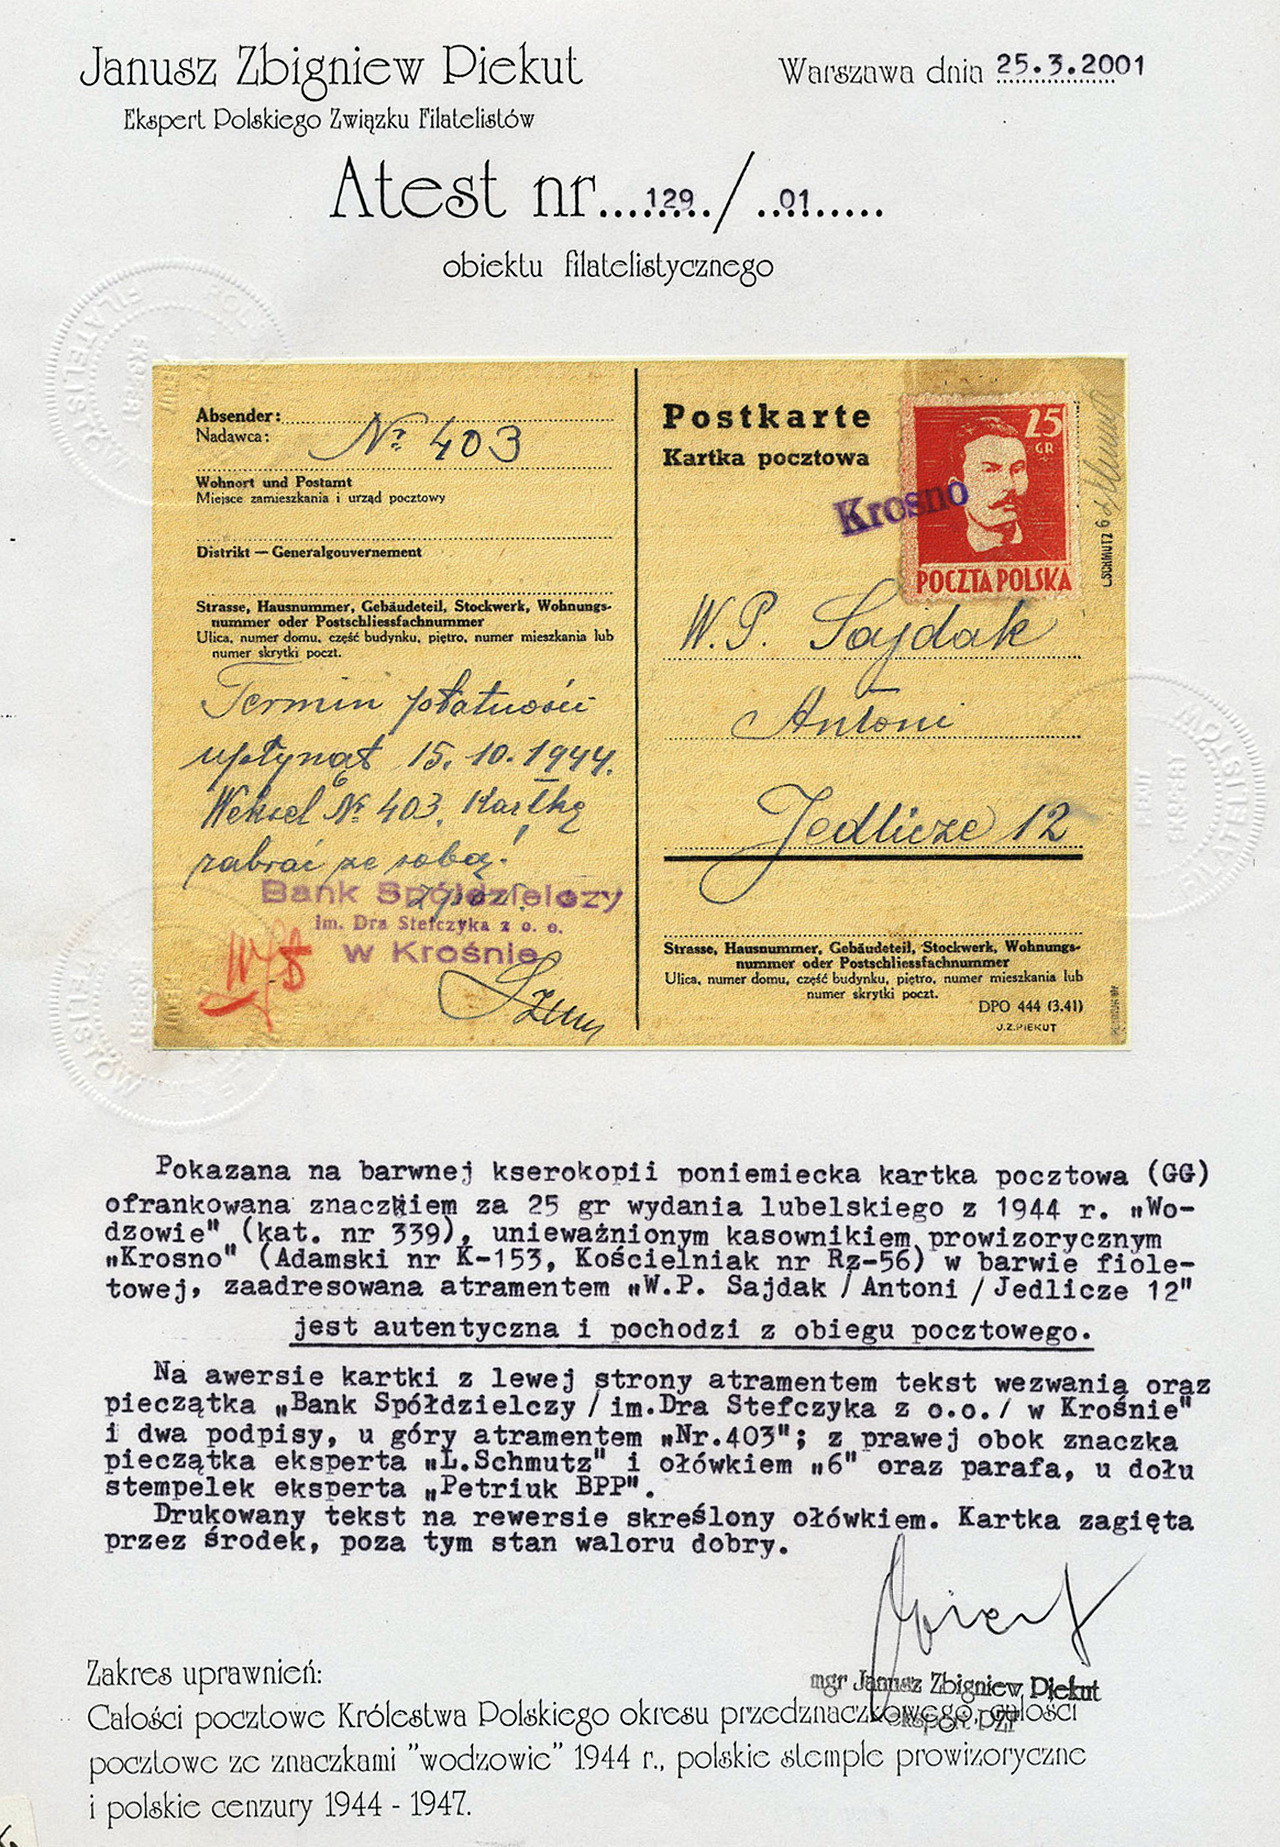 Janusz Zbigniew Piekut
Ekspert Polskiego Związku Filatelistów
Warszawa dnia 25.3.2001
Atest nr.....129../..01.....
obiektu filatelistycznego
Absender:
Nadawca:
Nr 403
Wohnort und Postamt
Miejsce zamieszkania i urząd pocztowy
Distrikt — Generalgouvernement
Strasse, Hausnummer, Gebäudeteil, Stockwerk, Wohnungs-
nummer oder Postschliessfachnummer
Ulica, numer domu, część budynku, piętro, numer mieszkania lub
numer skrytki poczt.
Termin płatności
upłynął 15.10.1944.
Weksel Nr 403. Kartkę
zabrać ze sobą!
Bank Spółdzielczy
im. Dra Stefczyka z o. o.
w Krośnie
Postkarte
Kartka pocztowa
25
GR
POCZTA POLSKA
Krosno
L.SCHMUTZ 6
W.P. Sajdak
Antoni
Jedlicze 12
Strasse, Hausnummer, Gebäudeteil, Stockwerk, Wohnungs-
nummer oder Postschliessfachnummer
Ulica, numer domu, część budynku, piętro, numer mieszkania lub
numer skrytki poczt.
DPO 444 (3.41)
J.Z.PIEKUT
Pokazana na barwnej kserokopii poniemiecka kartka pocztowa (GG)
ofrankowana znaczkiem za 25 gr wydania lubelskiego z 1944 r. „Wo-
dzowie" (kat. nr 339), unieważnionym kasownikiem prowizorycznym
„Krosno" (Adamski nr K-153, Kościelniak nr Rz-56) w barwie fiole-
towej, zaadresowana atramentem „W.P. Sajdak / Antoni / Jedlicze 12"
jest autentyczna i pochodzi z obiegu pocztowego.
Na awersie kartki z lewej strony atramentem tekst wezwania oraz
pieczątka „Bank Spółdzielczy / im.Dra Stefczyka z o.o./ w Krośnie"
i dwa podpisy, u góry atramentem „Nr.403"; z prawej obok znaczka
pieczątka eksperta „L.Schmutz" i ołówkiem „6" oraz parafa, u dołu
stempelek eksperta „Petriuk BPP".
Drukowany tekst na rewersie skreślony ołówkiem. Kartka zagięta
przez środek, poza tym stan waloru dobry.
mgr Janusz Zbigniew Piekut
ekspert PZF
Zakres uprawnień:
Całości pocztowe Królestwa Polskiego okresu przedznaczkowego, całości
pocztowe ze znaczkami "wodzowie" 1944 r., polskie stemple prowizoryczne
i polskie cenzury 1944 - 1947.